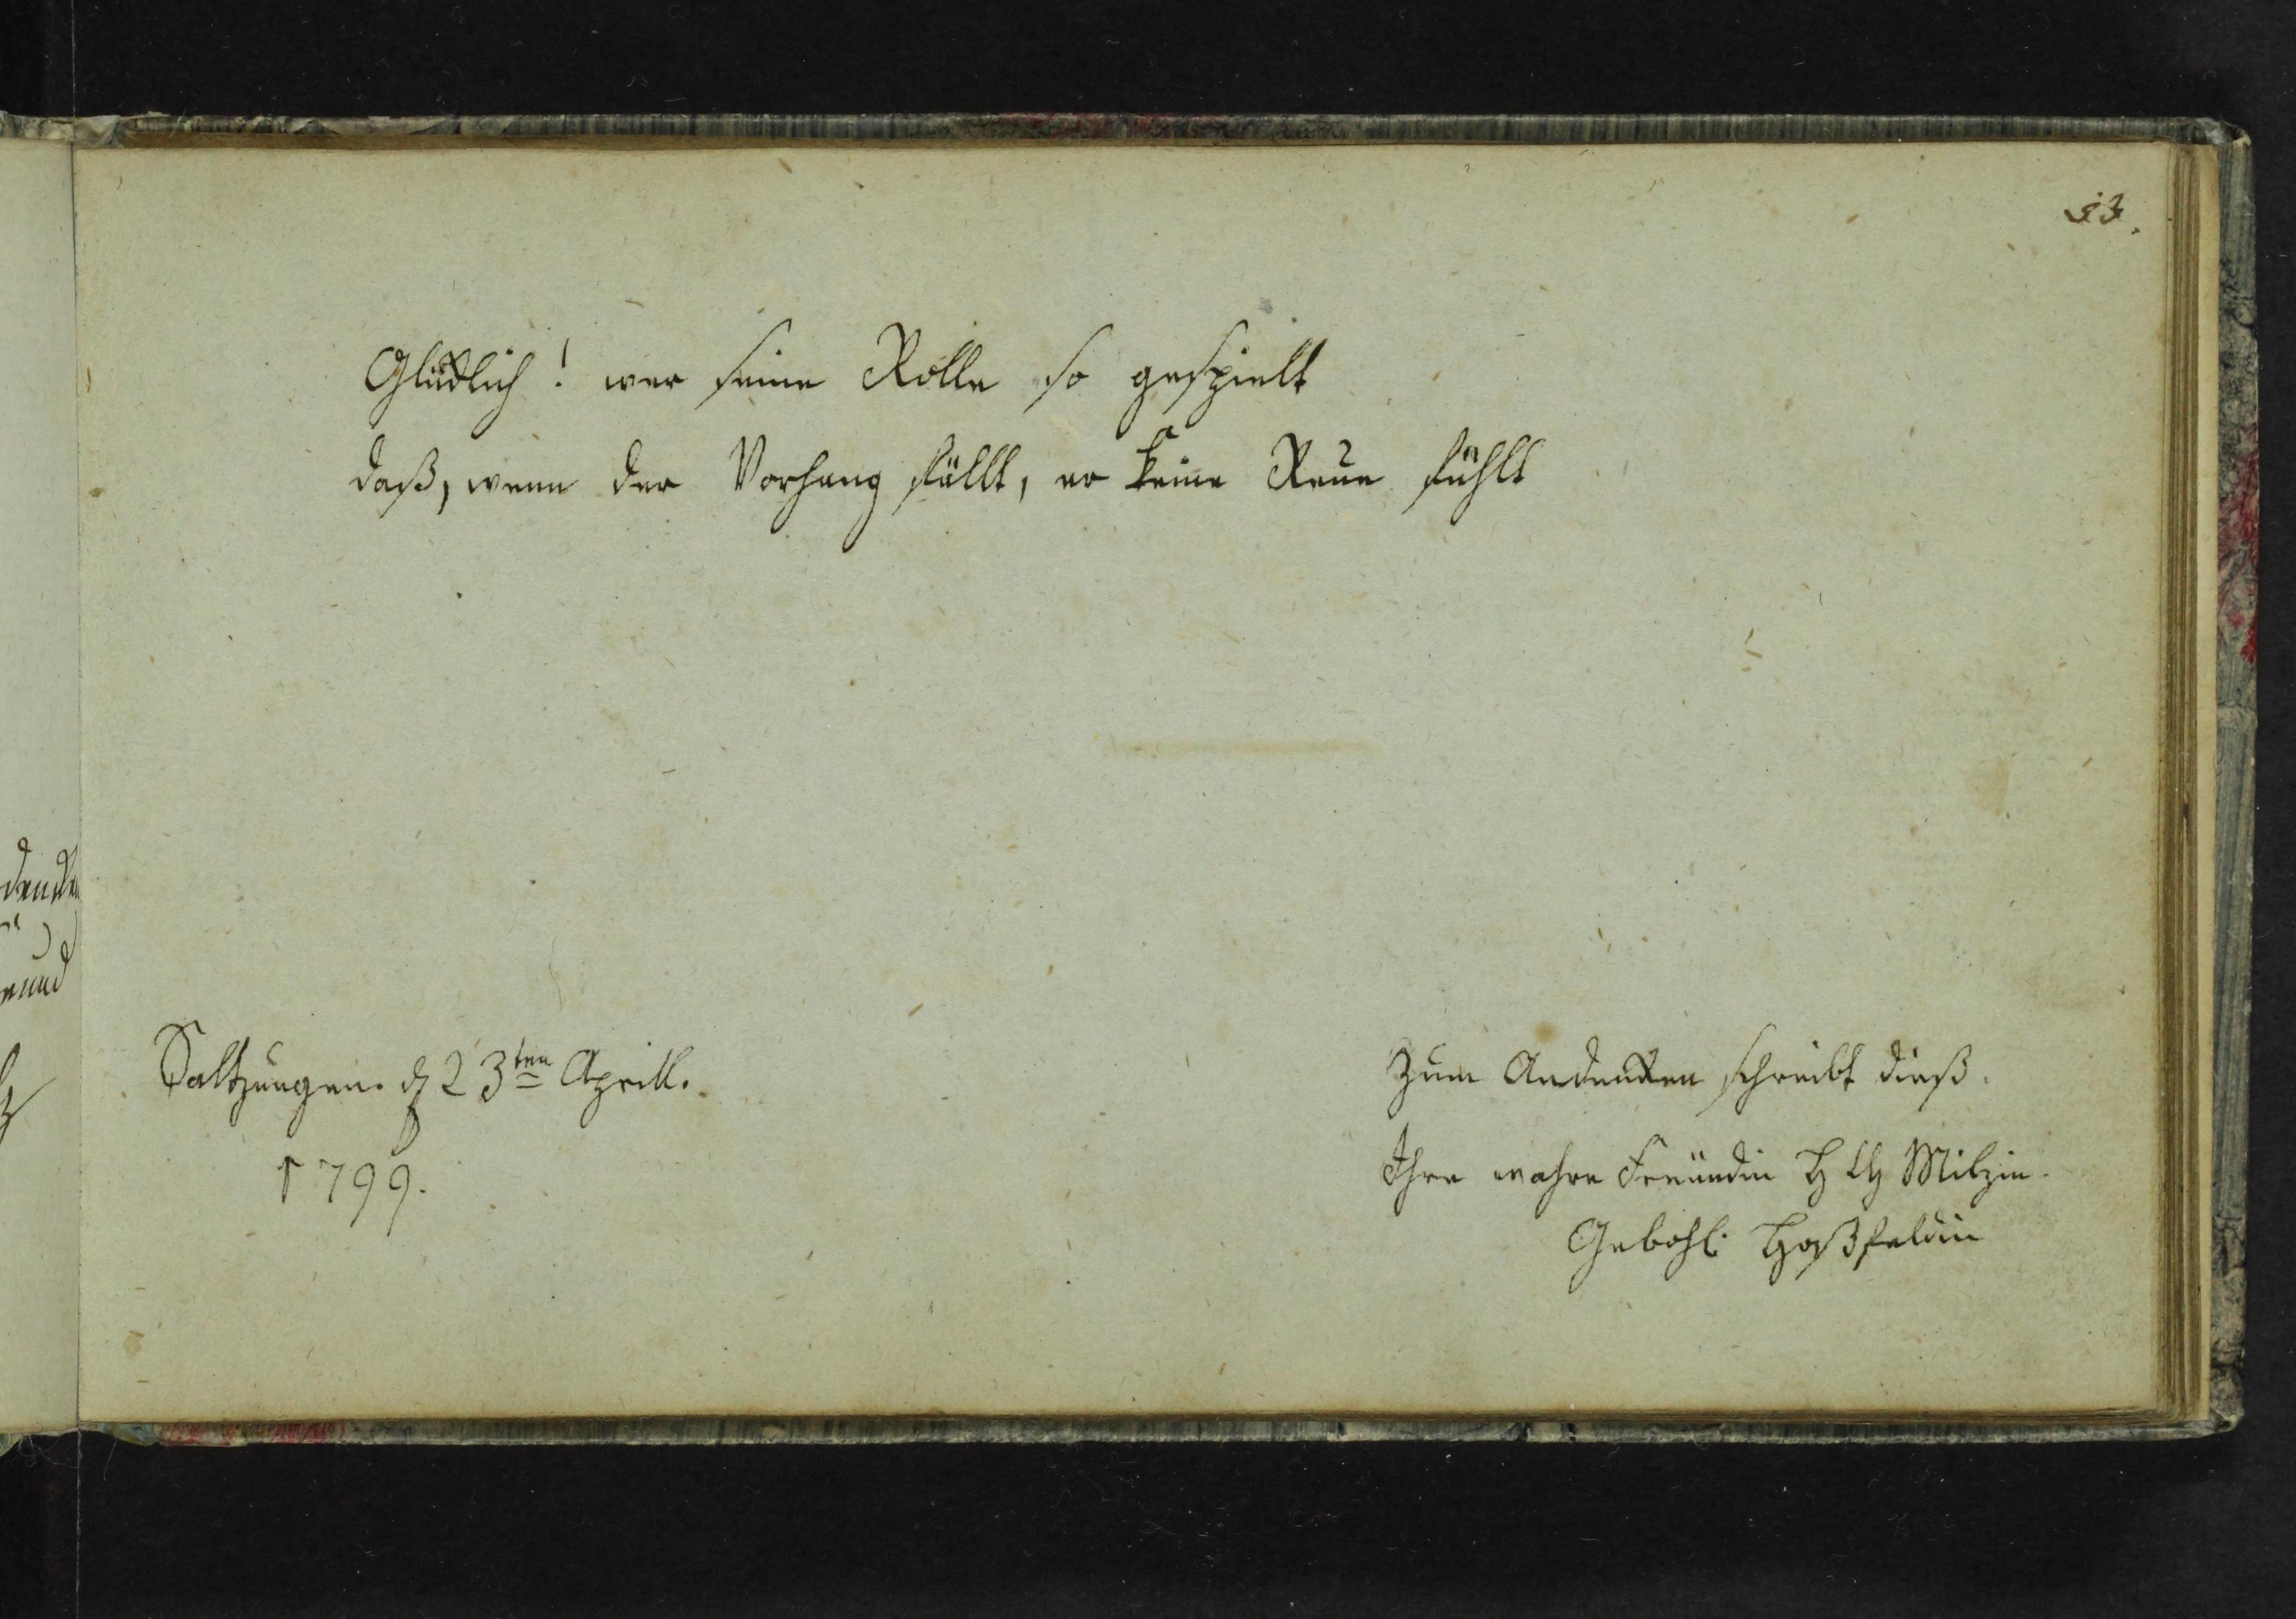 53.
Glücklich! wer seine Rolle so gespielt
daß, wenn der Vorhang fällt, er keine Reue fühlt
Saltzungen. d 23ten Aprill.
1799.
Zum Andencken schreibt dieß.
Ihre wahre Freündin H Milzin.
Gebohl. Hoßfeldin